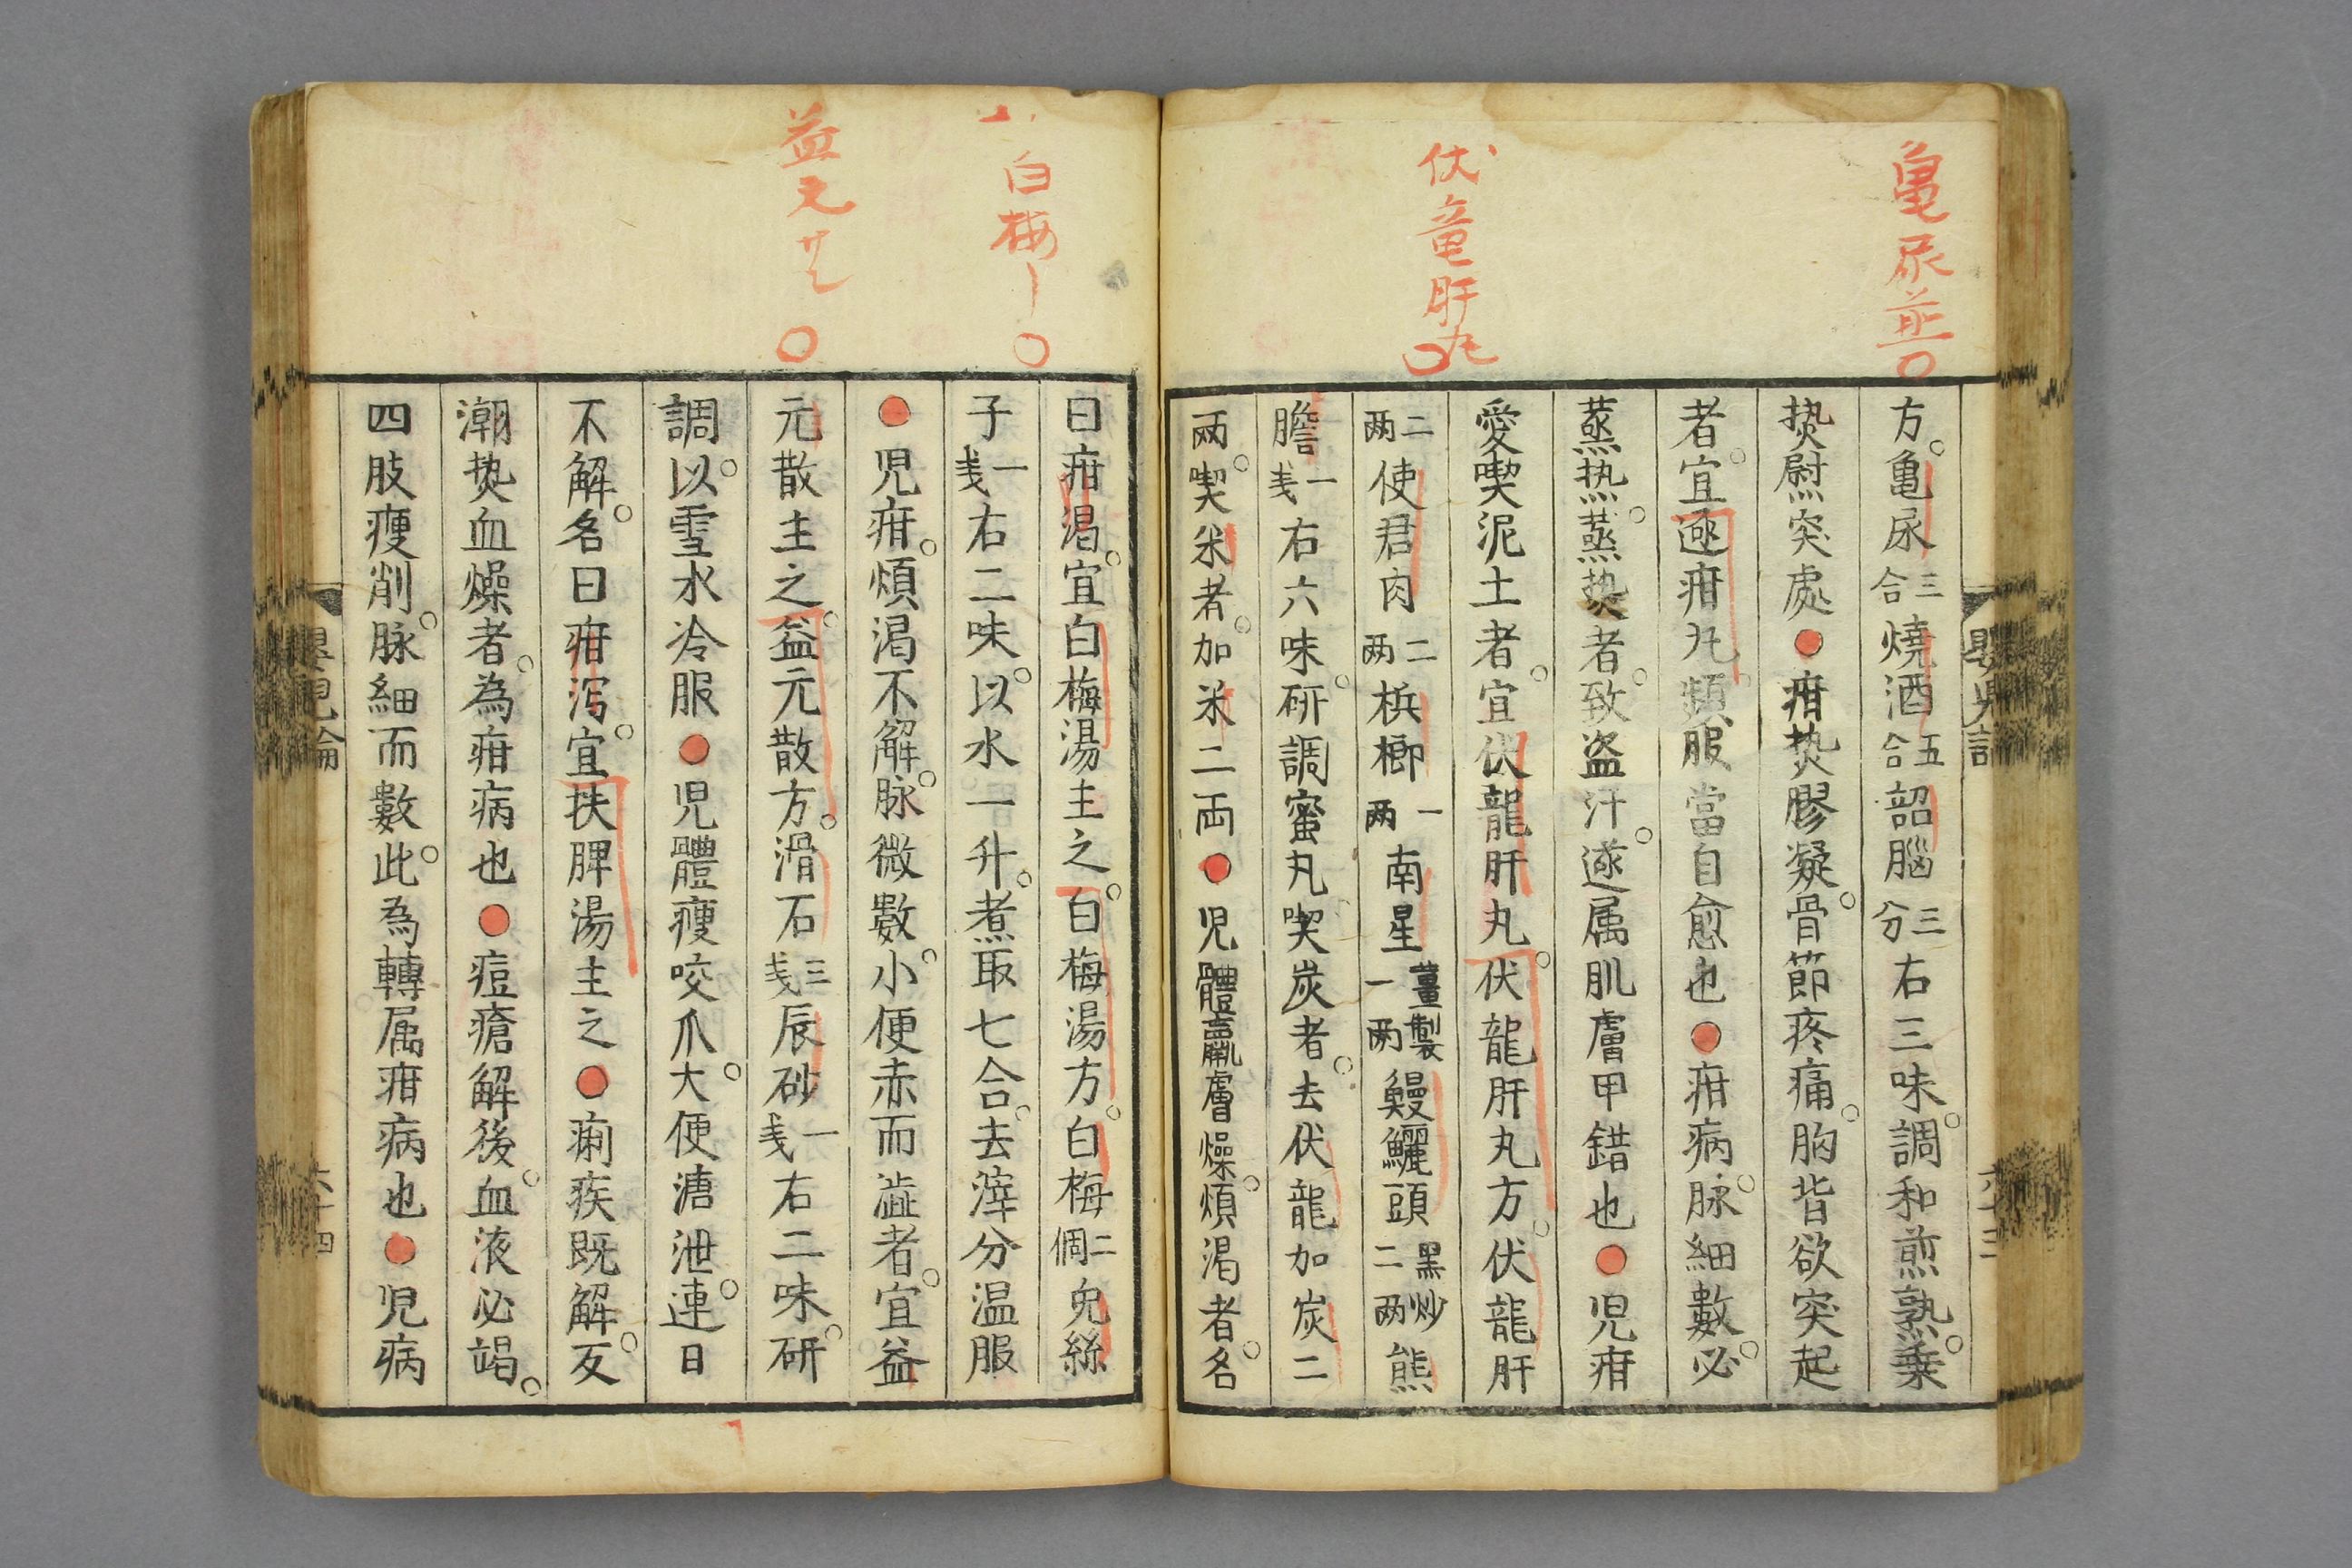 亀尿並〇
伏竜肝丸〇
方。亀尿三合燒酒五合韶腦三分右三味。調和煎熟。乗
𤍠慰突處●疳𤍠膠凝。骨節疼痛。胸背欲突起
者。宜逐疳丸。頻服當自愈也●疳病。脉細數。必
蒸热。蒸𤍠者。致盗汗。遂属肌膚甲錯也●児疳
愛喫泥土者。宜伏龍肝丸。伏龍肝丸方。伏龍肝
二两使君肉二两梹榔一两南星薑製一两鰻鱺頭黑炒二两熊
膽一戋右六味。研調蜜丸喫炭者。去伏龍加炭二
两。喫米者。加米二両●児體羸膚燥。煩渇者。名
白梅〇
益元〇
曰疳渇。宜白梅湯主之。白梅湯方。白梅二個兔絲
子一戋右二味。以水一升。煮取七合。去滓分温服
●児疳。煩渇不解。脉微數。小便赤而澁者。宜益
元散主之。益元散方。滑石三戋辰砂一戋右二味。研
調。以雪水冷服●児體瘦咬爪。大便溏泄。連日
不解。名曰疳泻。宜扶脾湯主之●痢疾既解。反
潮𤍠血燥者。為疳病也●痘瘡解後。血液必竭。
四肢瘦削。脉細而數。此為轉属疳病也●児病
嬰児論
六十四